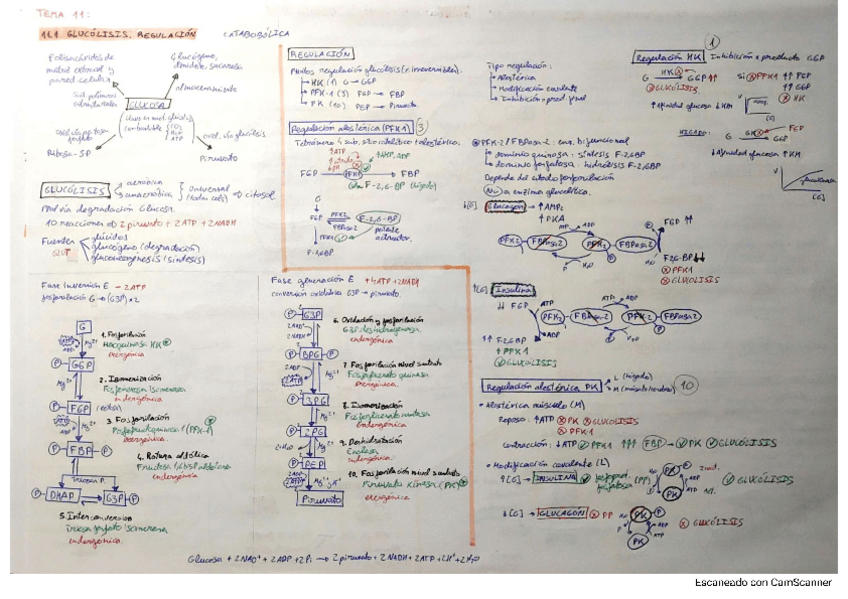 TEMA 11:
11.1 GLUCÓLISIS. REGULACIÓN
CATABOBÓLICA
Polisacáridos de
matriz extracel y
pared celular
Glucógeno,
almidón, sacarosa
almacenamiento
GLUCOSA
oxid. vía glucólisis
Ribosa-5P
Piruvato
GLUCÓLISIS
aeróbica
anaeróbica
universal
(todas cels)
citosol
Ppal vía degradación Glucosa.
10 reacciones → 2 piruvato + 2ATP + 2NADH
Fuentes
glúcidos
glucógeno (degradación)
gluconeogénesis (síntesis)
Fase inversión E - 2ATP
fosforilación G → (G3P) x2
G
1. Fosforilación
Hexoquinasa HK
exergónica
G6P
2. Isomerización
Fosfohexosa Isomerasa
endergónica
F6P
3. Fosforilación
Fosfofructoquinasa 1 (PFK-1)
exergónica
FBP
4. Rotura aldólica
endergónica
Triosas P.
DHAP
G3P
5. Interconversión
triosa fosfato isomerasa
endergónica
Fase generación E + 4ATP + 2NADH
conversión oxidativa G3P → piruvato.
G3P
6. Oxidación y fosforilación
G3P deshidrogenasa
endergónica
BPG
7. Fosforilación nivel sustrato
Fosfoglicerato quinasa
exergónica
3PG
8. Isomerización
Fosfoglicerato mutasa
endergónica
2PG
9. Deshidratación
Enolasa
endergónica
PEP
10. Fosforilación nivel sustrato
Piruvato Kinasa (PK)
exergónica
Piruvato
Glucosa + 2NAD⁺ + 2ADP + 2Pi → 2 piruvato + 2NADH + 2ATP + 2H⁺ + 2H₂O
REGULACIÓN
Puntos regulación glucólisis (r. irreversibles).
HK (1) G → G6P
PFK-1 (3) F6P → FBP
PK (10) PEP → Piruvato
Regulación alostérica (PFK1) 3
↑ATP
↑AMP, ADP
F6P
PFK1
FBP
F-2,6-BP (hígado)
G
F6P
PFK2
FBPasa2
F-2,6-BP
potente
activador.
PFK1
F-1,6BP
Tipo regulación:
Alostérica
Modificación covalente
Inhibición x prod. final
1
Regulación HK
Inhibición x producto G6P
G → G6P ↑↑
GLUCÓLISIS
Si PFK1 ↑↑ F6P
↑↑ G6P
HK
↑Afinidad glucosa ↓KM
HÍGADO:
G
GK
G6P
F6P
↓Afinidad glucosa ↑KM
V
[G]
PFK-2 / FBPasa-2: enz. bifuncional
dominio quinasa: síntesis F-2,6BP
dominio fosfatasa: hidrólisis F-2,6BP
Depende del estado fosforilación
No es enzima glucolítica.
↓[G]
Glucagón
→ ↑AMPc
↑PKA
PFK2
FBPasa2
PFK2
FBPasa2
F6P ↑↑
F2,6-BP ↓↓
PFK1
GLUCOLISIS
↑[G]
Insulina
↓↓ F6P
ATP
ADP
PFK2
FBPasa-2
PFK-2
FBPasa2
↑↑ F2,6BP
↑PFK1
GLUCOLISIS
Regulación alostérica PK
L (hígado)
M (músculo/cerebro)
10
Alostérica músculo (M)
Reposo: ↑ATP PK GLUCOLISIS
PFK1
Contracción: ↓ATP PFK1 ↑↑↑ FBP → PK GLUCÓLISIS
Modificación covalente (L)
↑[G] → INSULINA
fosfoprot.
fosfatasa
(PP)
PK
PK
Inact.
Act.
GLUCÓLISIS
↓[G] → GLUCAGÓN
PP
PK
PK
ADP
ATP
GLUCÓLISIS
Escaneado con CamScanner